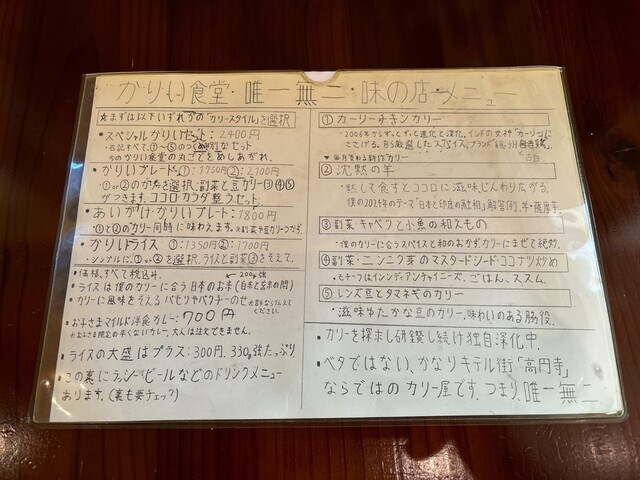 かりい食堂・唯一無二・味の店・メニュー
☆まずは以下いずれかの「カリースタイル」を選択
・スペシャルかりいセット: 2400円
・右記すべて、①〜⑤のつく特別なセット
今のかりい食堂の丸ごとをめしあがれ。
・かりいプレート①1750円②2,100円
・①or②のがを選択、副菜と豆カリー③④⑤
がつきます。ココロ・カラダ整うセット
・あいがけ・かりいプレート:1800円
・①と②のカリー同時に味わえます。※副菜や豆カリーつかず。
・かりいライス ①:1350円②:1700円
・シンプルに、①か②を選択、ライスと副菜③をそえて。
・価格、すべて税込み。
200g強
・ライスは僕のカリーに合う日本のお米(白米と玄米の間)
・カリーに風味をそえる パセリやパクチーのせ ※苦手なら伝えてください。
・お子さまマイルド洋食カレー: 700円
※お子さま限定の辛くないカレー、大人は注文できません。
・ライスの大盛はプラス:300円、330g強たっぷり。
・この裏にラッシーやビールなどのドリンクメニュー
あります。(裏も要チェック)
① カーリーチキンカリー
・2006年からずっとずっと進化と深化、インドの女神「カーリー」に
ささげる。
▼毎月変わる新作カリー
② 沈黙の羊
・黙して食すとココロに滋味、じんわり広がる。
僕の2024年のテーマ「日本と印度の融和」解答例。羊・薩摩芋
③ 副菜 キャベツと小魚の和えもの
・僕のカリーに合うスパイスと和のおかず。カリーにまぜて絶妙。
④ 副菜・ニンニク芽のマスタードシード・ココナツ炒め
・モチーフはインディアンチャイニーズ。ごはん、ススム。
⑤ レンズ豆とタマネギのカリー
・滋味ゆたかな豆のカリー。味わいのある脇役。
・カリーを探求し研鑽し続け独自深化中。
・ベタではない、かなりキテル街「高円寺」
ならではのカリー屋です。つまり、唯一無二